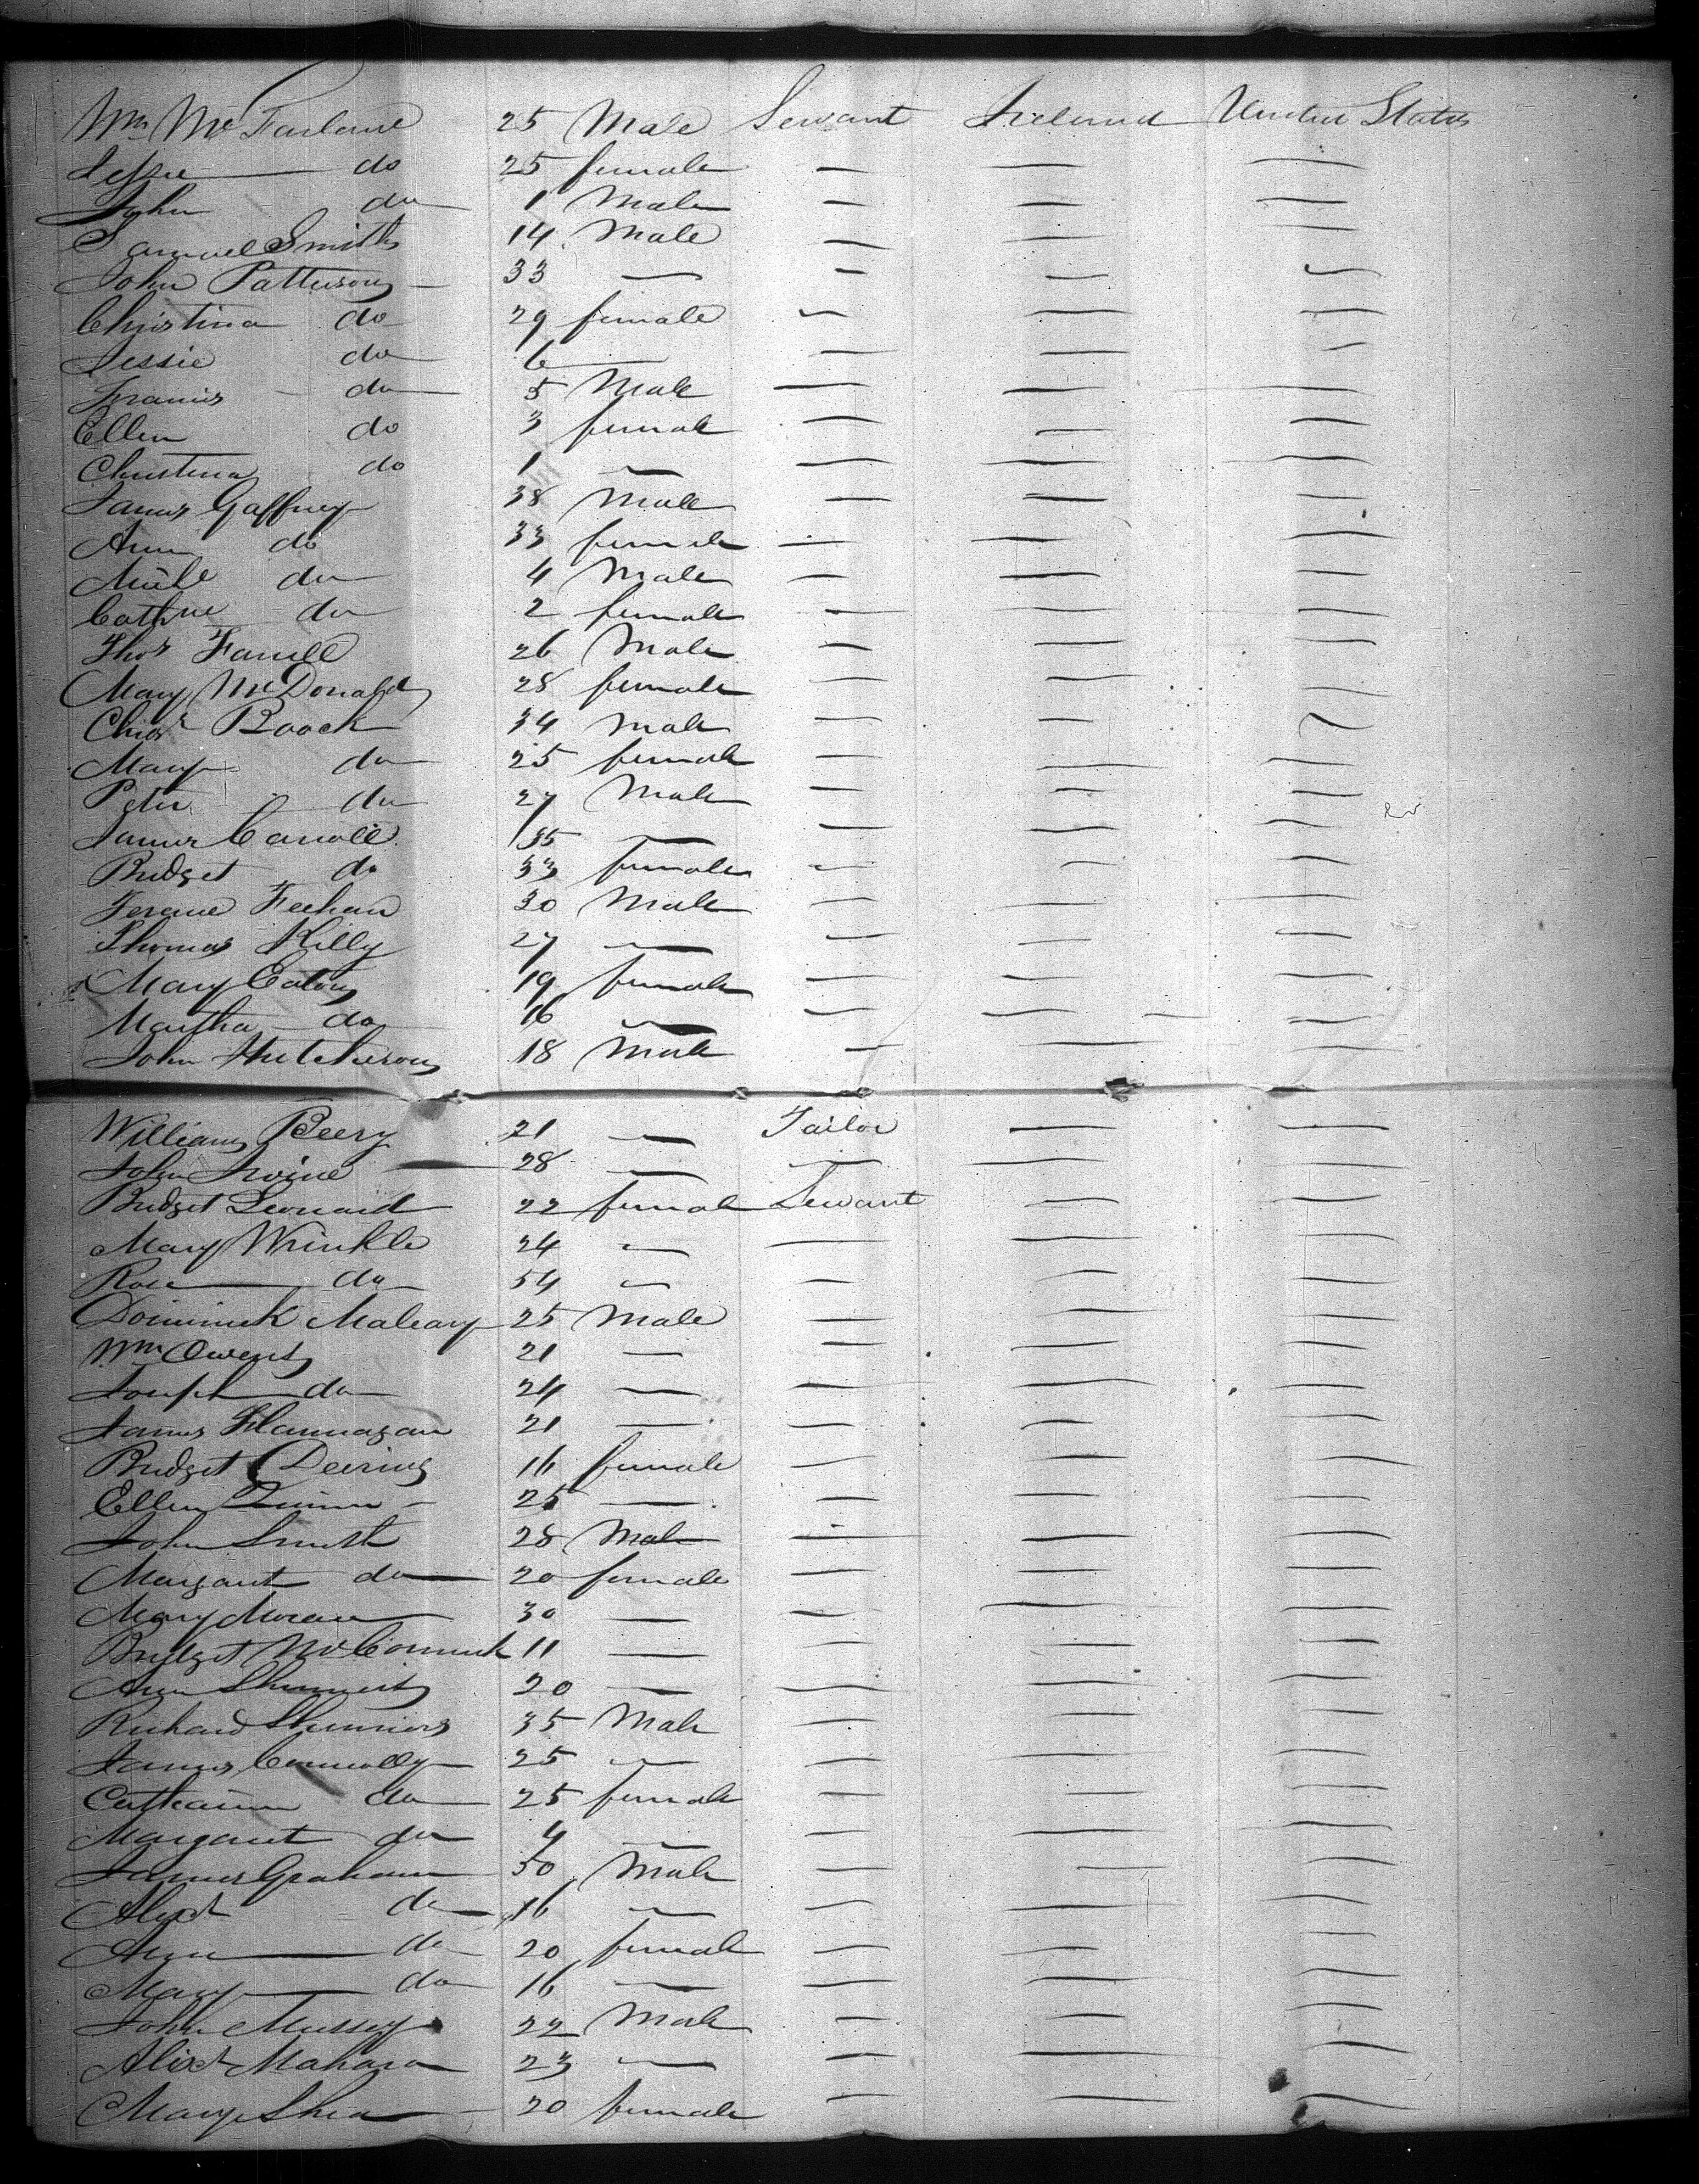 Wm McFarlane 25 Male Servant Ireland United States
Jessie — do 25 female — — —
John do 1 Male — — —
Samuel Smith 14 Male — — —
John Patterson — 33 — — — —
Christina do 29 female — — —
Jessie do 6 — — — —
Francis do 5 Male — — —
Ellen do 3 female — — —
Christina do 1 — — — —
James Gaffney 38 Male — — —
Ann do 33 female — — —
do 4 Male — — —
Cathne do 2 female — — —
Thos Farrell 26 Male — — —
Mary McDonald 28 female — — —
Boock 34 Male — — —
Mary do 25 female — — —
Peter do 27 Male — — —
James Carroll 35 — — — —
Bridget do 33 female — — —
Feehan 30 Male — — —
Thomas Killy 27 — — — —
Mary Eaton 19 female — — —
Martha do 16 — — — —
John Hutcheson 18 Male — — —
William Beery 21 — Tailor — —
John Irvine — 28 — — — —
Bridget Leonard 22 female Servant — —
Mary Wrinkle 24 — — — —
Rose — do 54 — — — —
Dominick Maleary 25 Male — — —
Wm Owens 21 — — — —
Joseph do 24 — — — —
James Flannagan 21 — — — —
Bridget Deering 16 female — — —
Ellen Quinn — 25 — — — —
John Smith 28 Male — — —
Margaret do 20 female — — —
Mary Moran 30 — — — —
Bridget McCormick 11 — — — —
Ann 20 — — — —
Richard 35 Male — — —
James Connolly 25 — — — —
Catharine do 25 female — — —
Margaret do 4 — — — —
James Graham 50 Male — — —
Alext do 16 — — — —
Ann — do 20 female — — —
Mary — do 16 — — — —
John Mussey 22 Male — — —
Alext Mahara 23 — — — —
Mary Shea 20 female — — —